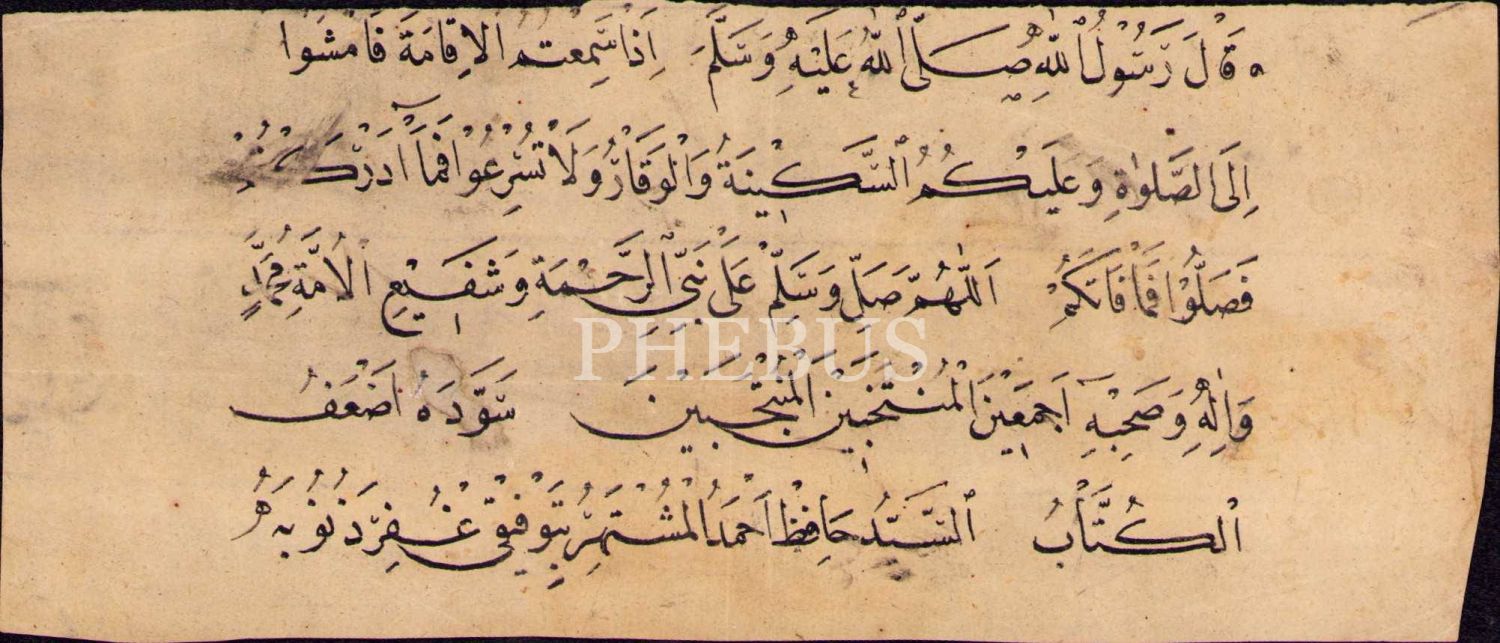 قَالَ رَسُولُ اللّٰهِ صَلَّى اللّٰهُ عَلَيْهِ وَسَلَّمَ اِذَا سَمِعْتُمُ الْاِقَامَةَ فَامْشُوا
اِلَى الصَّلٰوةِ وَعَلَيْكُمُ السَّكِيْنَةُ وَالْوَقَارُ وَلَا تُسْرِعُوْا فَمَا اَدْرَكْتُمْ
فَصَلُّوْا فَمَا فَاتَكُمْ اَللّٰهُمَّ صَلِّ وَسَلِّمْ عَلٰى نَبِيِّ الرَّحْمَةِ وَشَفِيْعِ الْاُمَّةِ مُحَمَّدٍ
وَاٰلِهِ وَصَحْبِهِ اَجْمَعِيْنَ الْمُنْتَخَبِيْنَ الْمُنْتَجَبِيْنَ سَوَّدَهُ اَضْعَفُ
الْكُتَّابُ السَّيِّدُ حَافِظْ اَحْمَدُ الْمُشْتَهِرُ بِتَوْفِيْقِى غُفِرَ ذُنُوْبُهُ
PHEBUS